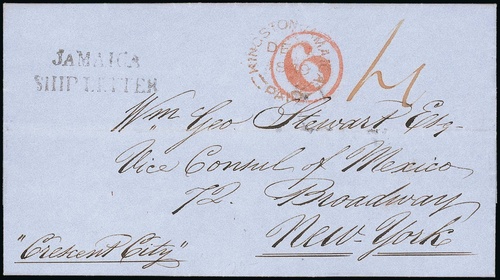 JAMAICA
SHIP LETTER
KINGSTON JAMAICA
PAID
6
Wm Geo. Stewart Esq.
Vice Consul of Mexico
72. Broadway
New-York
"Crescent City"